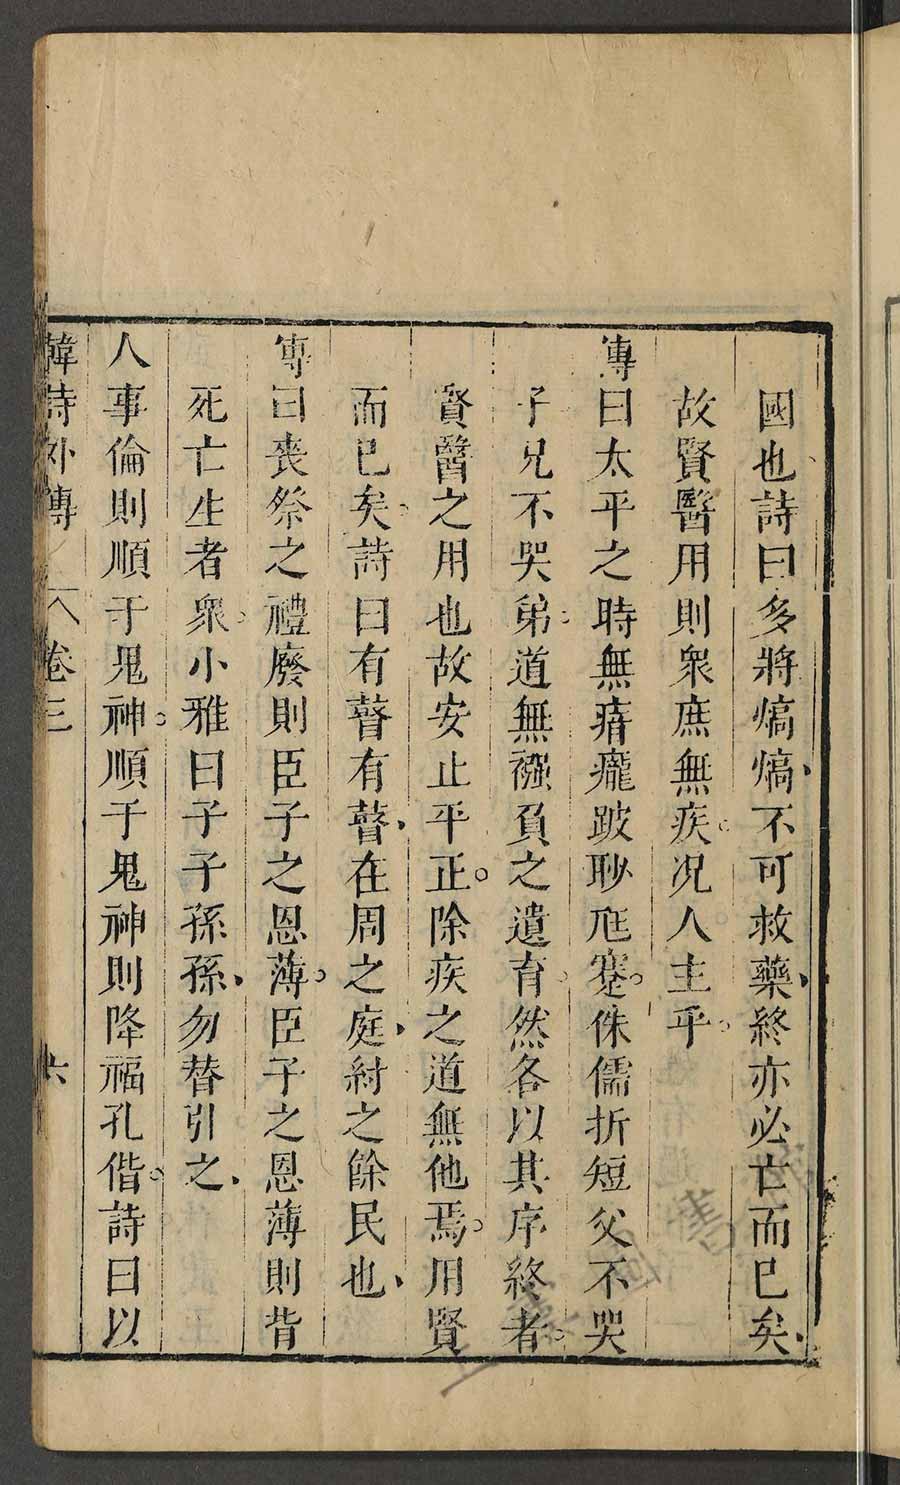 國也詩曰多將熇熇不可救藥終亦必亡而已矣
故賢醫用則衆庶無疾况人主乎
傳曰太平之時無瘖𤼵跛眇尩蹇侏儒折短父不哭
子兄不哭弟道無襁負之遺育然各以其序終者
賢醫之用也故安止平正除疾之道無他焉用賢
而已矣詩曰有瞽有瞽在周之庭紂之餘民也
傳曰喪祭之禮廢則臣子之恩薄臣子之恩薄則背
死亡生者衆小雅曰子子孫孫勿替引之
人事倫則順于鬼神順于鬼神則降福孔偕詩曰以
韓詩外傳 卷三 六